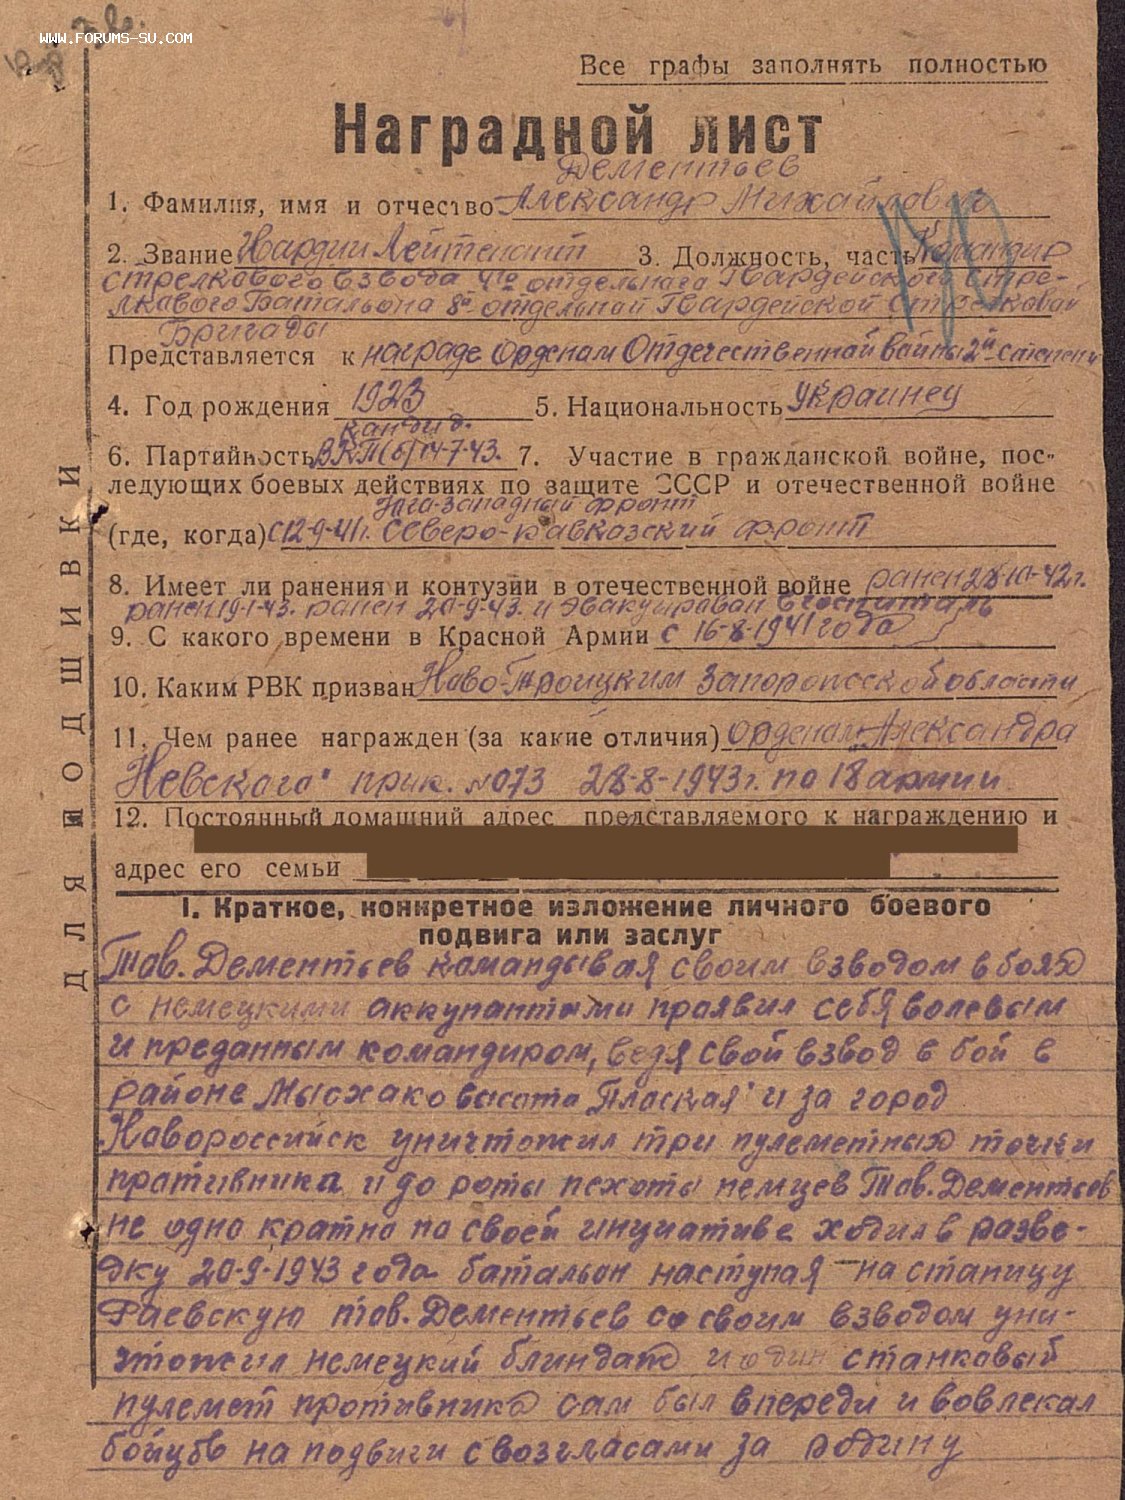 WWW.FORUMS-SU.COM
Все графы заполнять полностью
Наградной лист
Дементьев
1. Фамилия, имя и отчество Александр Михайлович
2. Звание Гвардии Лейтенант 3. Должность, часть Командир
стрелкового взвода 4го отдельнага Гвардейского стре-
лкового Батальона 8й отдельной Гвардейской Стрелковай
Бригады
Представляется к награде Орденам Отечественной войны 2й степени
4. Год рождения 1923 5. Национальность Украинец
кандид.
6. Партийность ВКП(б) 14-7-43. 7. Участие в гражданской войне, пос-
ледующих боевых действиях по защите СССР и отечественной войне
Юга-Западный фронт
(где, когда) С 12-9-41г. Северо-Кавказский фронт
8. Имеет ли ранения и контузии в отечественной войне ранен 28-10-42г.
ранен 19-1-43. ранен 20-9-43. и эвакуирован в госпиталь
9. С какого времени в Красной Армии с 16-8-1941 года
10. Каким РВК призван Ново-Троицким Запорожской области
11. Чем ранее награжден (за какие отличия) орденам „Александра
Невскага" прик. №073 28-8-1943г. по 18 армии
12. Постоянный домашний адрес представляемого к награждению и
адрес его семьи
ДЛЯ ПОДШИВКИ
I. Краткое, конкретное изложение личного боевого
подвига или заслуг
Тав. Дементьев камандывая своим взводом в боях
с немецкими аккупантами праявил себя волевым
и преданным командиром, ведя свой взвод в бой в
районе Мысхако высота „Плаская" и за город
Навороссийск уничтожил три пулеметных точки
пративника и до роты пехоты немцев Тав. Дементьев
не одно кратно по своей инициативе ходил в разве-
дку 20-9-1943 года батальон наступая на станицу
Раевскую тов. Дементьев со своим взводом уни-
чтожил немецкий блиндаж и один станковый
пулемет противника сам был впереди и вовлекал
бойцов на подвиги с возгласами за родину